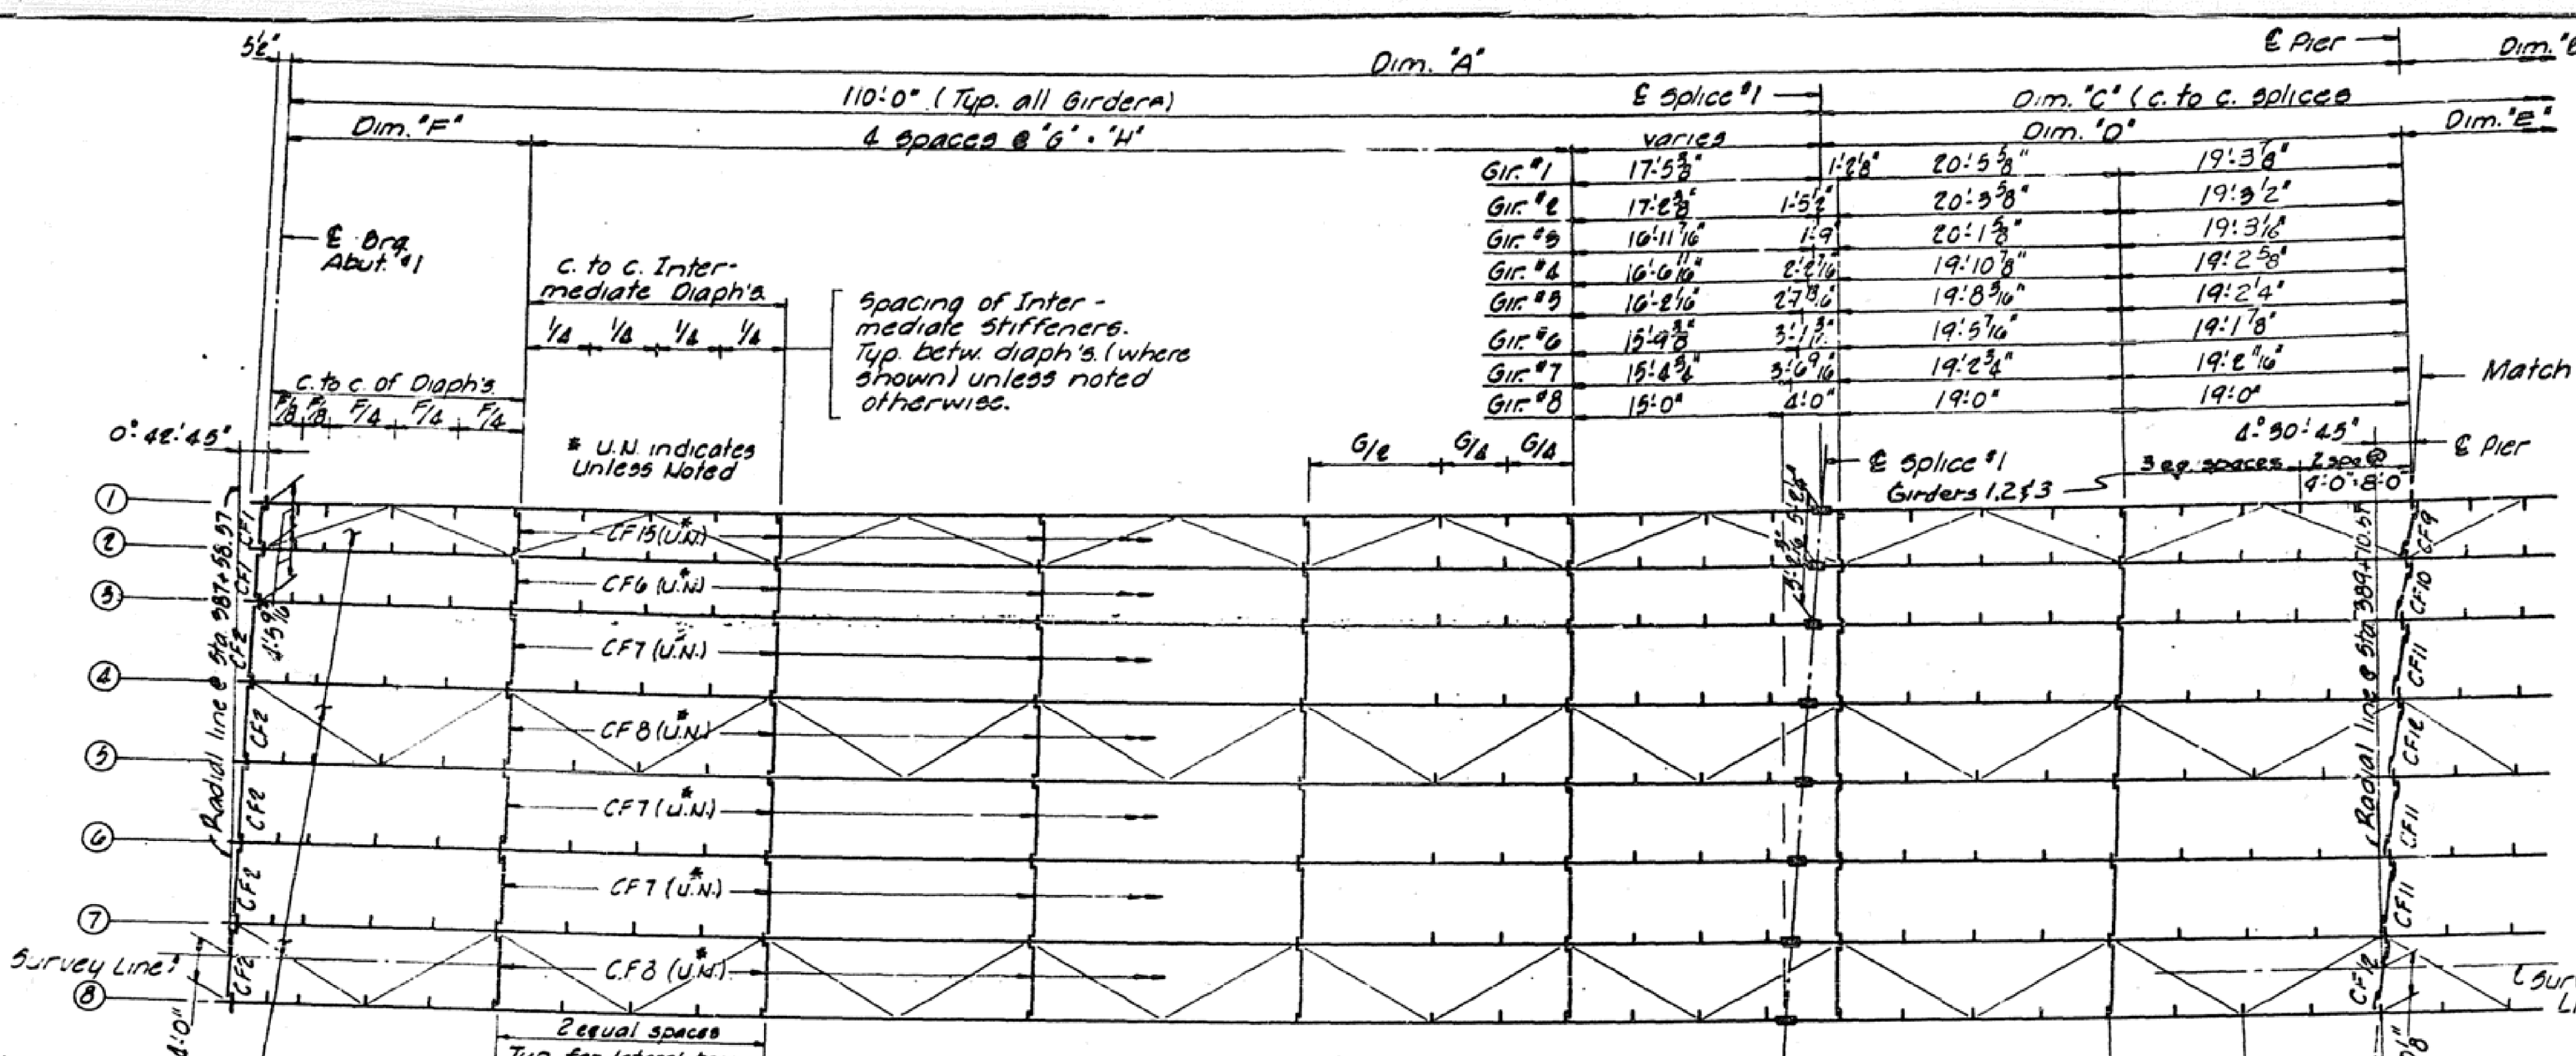 5½"
Dim. "A"
℄ Pier
110'-0" (Typ. all Girders)
℄ Splice #1
Dim. "C" (c. to c. splices
Dim. "F"
4 spaces @ "G" = "H"
varies
Dim. "D"
Dim. "E"
Gir. #1 17'-5⅜" 20'-5⅝" 19'-3⅞"
Gir. #2 17'-2⅜" 1'-5½" 20'-3⅝" 19'-3½"
Gir. #3 16'-11⁷⁄₁₆" 1'-9" 20'-1⅝"
Gir. #4 16'-6¹¹⁄₁₆" 19'-10⅞" 19'-2⅝"
Gir. #5 2'-7¹³⁄₁₆" 19'-8⁵⁄₁₆" 19'-2¼"
Gir. #6 15'-9⅜" 19'-5⁷⁄₁₆" 19'-1⅞"
Gir. #7 15'-4¾" 3'-6⁹⁄₁₆" 19'-2¾"
Gir. #8 15'-0" 4'-0" 19'-0" 19'-0"
℄ Brg.
Abut. #1
c. to c. Inter-
mediate Diaph's.
¼ ¼ ¼ ¼
Spacing of Inter-
mediate Stiffeners.
Typ. betw. diaph's. (where
shown) unless noted
otherwise.
c. to c. of Diaph's.
F/8 F/8 F/4 F/4 F/4
0°-42'-45"
* U.N. indicates
Unless Noted
G/2 G/4 G/4
℄ Splice #1
Girders 1,2&3
3 eq. spaces
2 spa @
4'-0"=8'-0"
4°-30'-45"
℄ Pier
Match
1
2
3
4
5
6
7
8
Radial line @ Sta. 387+58.57
CF1
CF1
CF2
CF2
CF2
CF2
CF2
CF15 (U.N.)*
CF6 (U.N.)*
CF7 (U.N.)*
CF8 (U.N.)*
CF7 (U.N.)*
CF7 (U.N.)*
CF8 (U.N.)*
Radial line @ Sta. 389+70.57
CF9
CF10
CF11
CF12
CF11
CF11
CF12
Survey Line
4'-0"
2 equal spaces